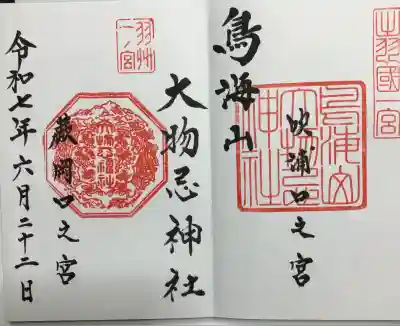 出羽國一宮
鳥海山
鳥海山
大物忌
神社
吹浦口之宮
大物忌神社
羽州
一ノ宮
蕨岡口之宮
令和七年六月二十二日